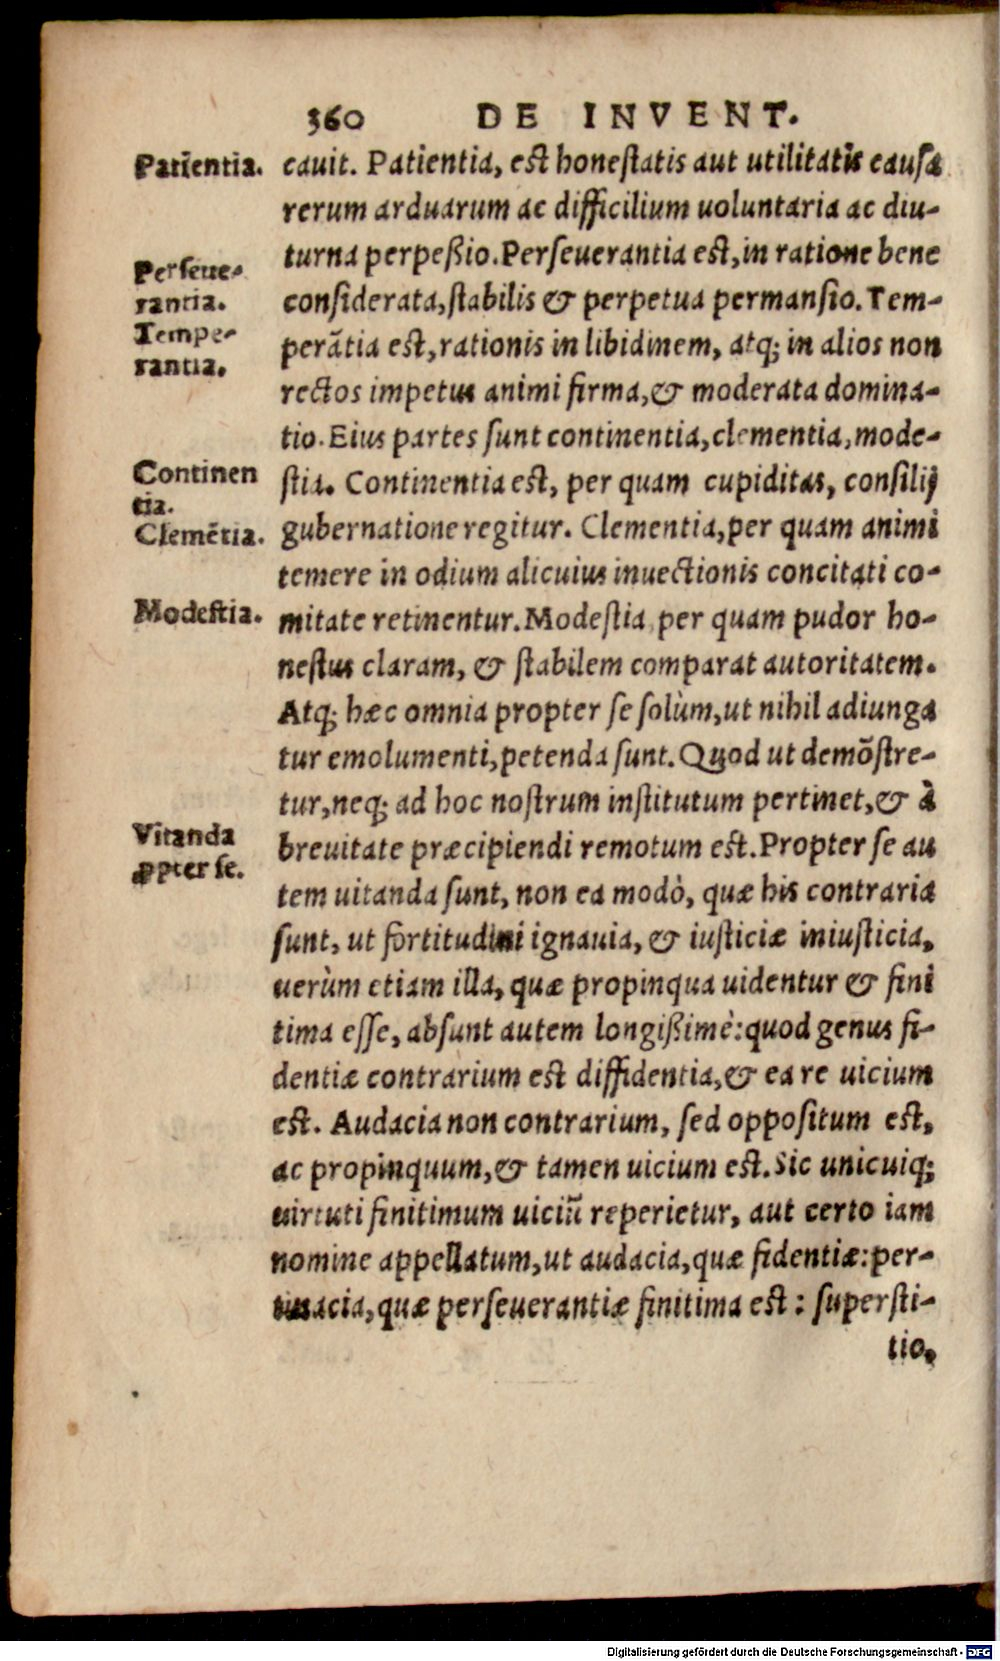 360 DE INVENT.
Patientia.
cauit. Patientia, est honestatis aut utilitatis causa
rerum arduarum ac difficilium uoluntaria ac diu-
turna perpeßio. Perseuerantia est, in ratione bene
Perseue-
rantia.
considerata, stabilis & perpetua permansio. Tem-
Tempe-
rantia.
perātia est, rationis in libidinem, atq; in alios non
rectos impetus animi firma, & moderata domina-
tio. Eius partes sunt continentia, clementia, mode-
Continen
tia.
stia. Continentia est, per quam cupiditas, consilij
Clemētia.
gubernatione regitur. Clementia, per quam animi
temere in odium alicuius inuectionis concitati co-
Modestia.
mitate retinentur. Modestia per quam pudor ho-
nestus claram, & stabilem comparat autoritatem.
Atq; hæc omnia propter se solùm, ut nihil adiunga
tur emolumenti, petenda sunt. Quod ut demōstre-
tur, neq; ad hoc nostrum institutum pertinet, & à
Vitanda
ꝓpter se.
breuitate præcipiendi remotum est. Propter se au
tem uitanda sunt, non ea modò, quæ his contraria
sunt, ut fortitudini ignauia, & iusticiæ iniusticia,
uerùm etiam illa, quæ propinqua uidentur & fini
tima esse, absunt autem longißimè: quod genus fi-
dentiæ contrarium est diffidentia, & ea re uicium
est. Audacia non contrarium, sed oppositum est,
ac propinquum, & tamen uicium est. Sic unicuiq;
uirtuti finitimum uiciū reperietur, aut certo iam
nomine appellatum, ut audacia, quæ fidentiæ: per-
tinacia, quæ perseuerantiæ finitima est: supersti-
tio,
Digitalisierung gefördert durch die Deutsche Forschungsgemeinschaft - DFG